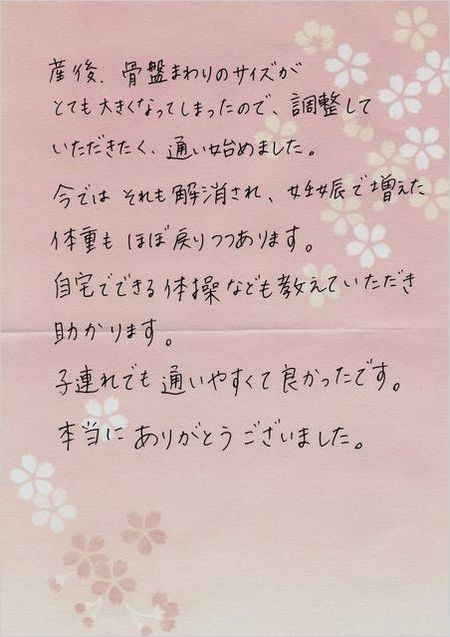 産後、骨盤まわりのサイズが
とても大きくなってしまったので、調整して
いただきたく、通い始めました。
今では それも解消され、妊娠で増えた
体重も ほぼ戻りつつあります。
自宅でできる体操なども教えていただき
助かります。
子連れでも 通いやすくて 良かったです。
本当に ありがとうございました。